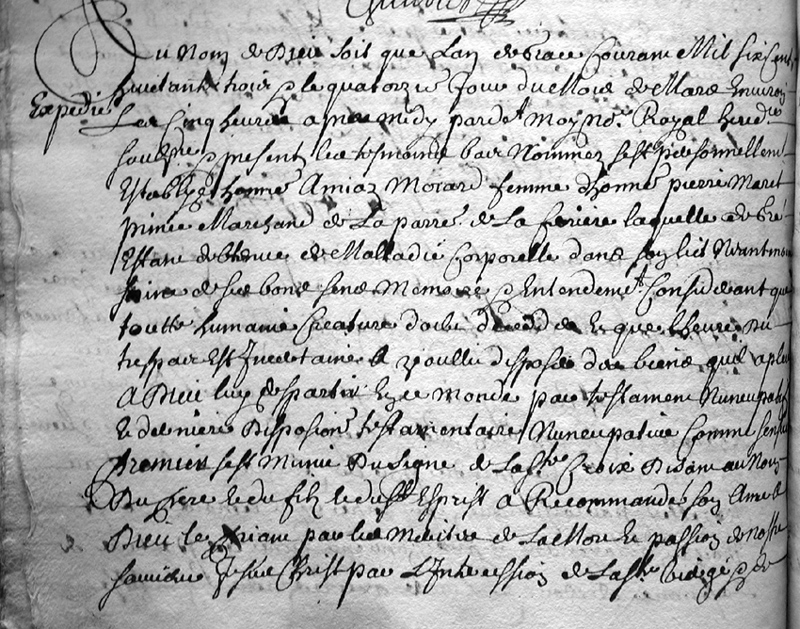 Au Nom de Dieu soit que Lan de Grace Courant Mil six Cent
huictante trois & le quatorzie Jour du Mois de Mars Environ
Expedié
Les Cinq heures apres midy pardt moy nore Royal hered
soubzne & present les tesmoins bas Nommez sest personnellemt
Establye honne Mocard femme dhonne pierre Maret
Marchand de La parre de La laquelle de gré
Estant detenue de Malladie Corporelle dans son lict Neantmoins
saine de ses bons sens Memoire & Entendemt Considerant que
toutte humaine Creature doibt Et que lheure du
trespas Est Incertaine a voullu disposer des biens quil a pleu
A Dieu luy despartir En ce monde par testament Nuncupatif
Et derniere disposion testamentaire Nuncupative Comme sensuit
Premier sest Munie Du Signe de La Ste Croix Disant au Nom
Du pere Et du fils Et du st Esprit a Recommandé son Ame a
Dieu le priant par les Merites de La Mort Et passion de Nostre
sauveur Jesus Christ par LIntercession de La ste vierge